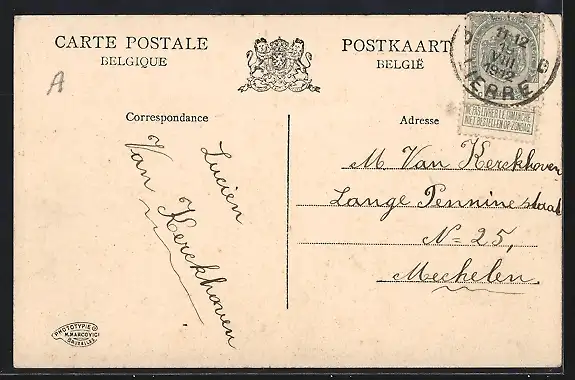 CARTE POSTALE
BELGIQUE
POSTKAART
BELGIË
11-12
15
VIII
1912
LIERRE
NE PAS LIVRER LE DIMANCHE
NIET BESTELLEN OP ZONDAG
A
Correspondance
Adresse
Lucien
Van Kerckhoven
M. Van Kerckhoven
Lange Penninestraat
N= 25,
Mechelen
PHOTOTYPIE
M. MARCOVICI
BRUXELLES